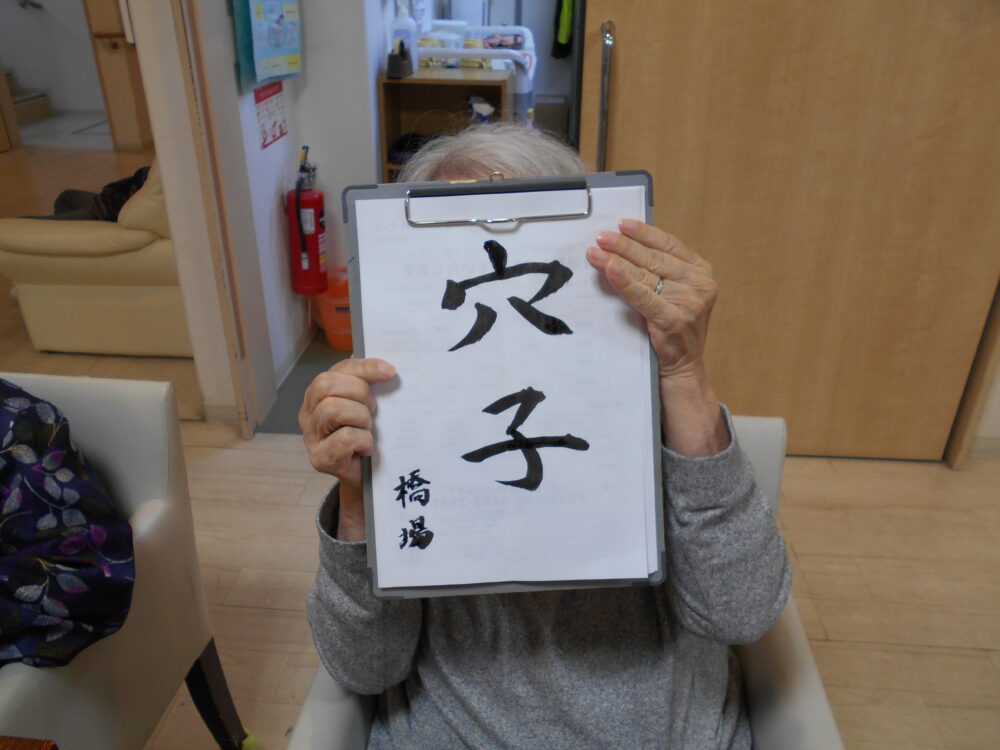 穴子
橋場